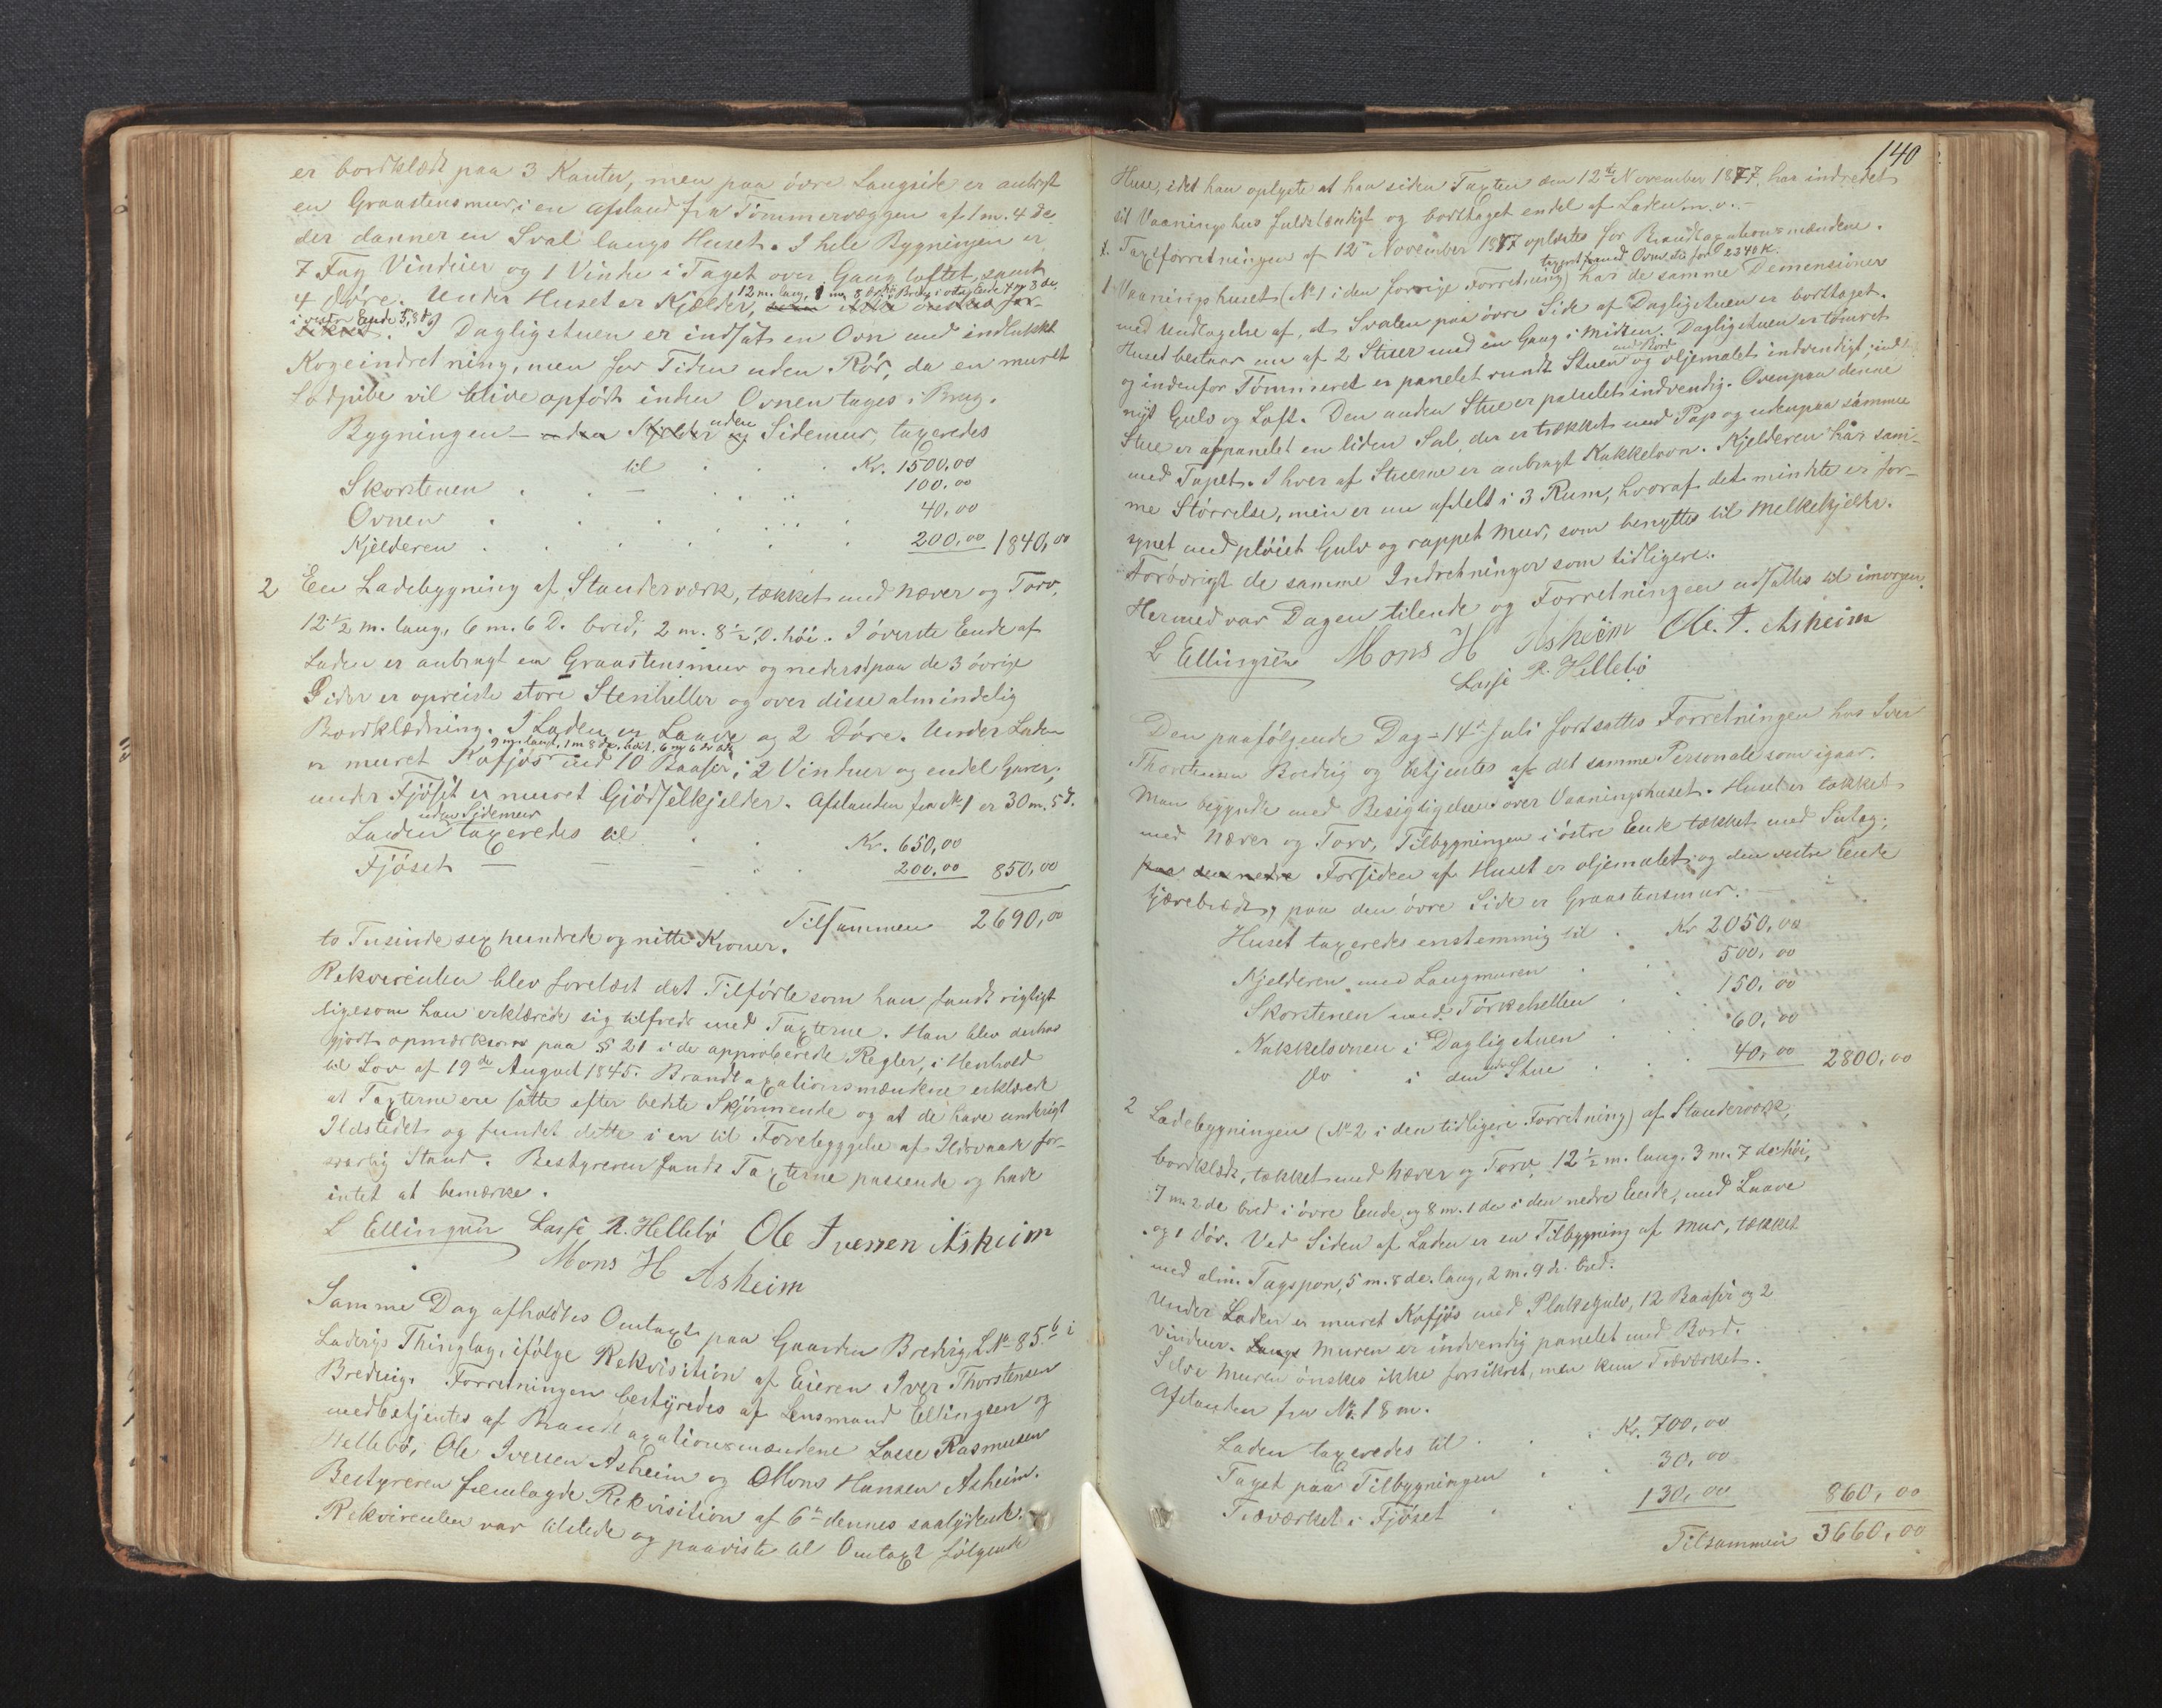 er bordklædt paa 3 Kanter, men paa övre Langside er anbragt
en Graastensmur, i en Afstand fra Tömmervæggen af 1 m. 4 de
der danner en Sval langs Huset. I hele Bygningen er
7 Fag Vinduer og 1 Vindu i Taget over Gangloftet, samt
12 m. lang, 1 m. 8 de. höi, Bred i östre Ende 4 m 3 de.
4 Döre. Under Huset er Kjelder, som ikke önskes for-
i vestre Ende 5, 8 d.
sikret. I Dagligstuen er indsat en Ovn med indlukket
Kogeindretning, men for Tiden uden Rör, da en muret
Lodpibe vil blive opfört inden Ovnen tages i Brug.
Bygningen – uden Kjelder og uden Sidemur, taxeredes
til . . . Kr. 1500,00
Skorstenen . . — . . . 100,00
Ovnen . . . . . 40,00
Kjelderen . . . . . 200,00 1840,00
2 En Ladebygning af Standerværk, tækket med Næver og Torv,
12 1/2 m. lang, 6 m. 6 D. bred, 2 m. 8 1/2 D. höi. I överste Ende af
Laden er anbragt en Graastensmur og nederst paa de 3 övrige
Sider er opreiste store Stenheller og over disse almindelig
Bordklædning. I Laden er Laave og 2 Döre. Under Laden
9 m. langt, 1 m 8 de. höit, 6 m 6 de
er muret Kofjös med 10 Baaser, 2 Vinduer og endel Garer;
under Fjöset er muret Gjödselkjelder. Afstanden fra No 1 er 30 m. 5 d.
uden Sidemur
Laden taxeredes til . . Kr. 650,00
Fjöset — — — . . 200,00 850,00
Tilsammen 2690,00
to Tusinde sex hundrede og nitti Kroner.
Rekvirenten blev forelæst det Tilförte som han fandt rigtigt
ligesom han erklærede sig tilfreds med Taxterne. Han blev derhos
gjort opmærksom paa § 21 i de approberede Regler, i Henhold
til Lov af 19de August 1845. Brandtaxationsmændene erklærede
at Taxterne ere satte efter bedste Skjönnende og at de have undersögt
Ildstedet og fundet dette i en til Forebyggelse af Ildsvaade for-
svarlig Stand. Bestyreren fandt Taxterne passende og havde
intet at bemærke.
L Ellingsen Lasse R. Hellebö Ole Iversen Asheim
Mons H Asheim
Samme Dag afholdtes Omtaxt paa Gaarden Breding L.No 85 b i
Laderigs Thinglag, ifölge Rekvisition af Eieren Iver Thorstensen
Breding. Forretningen bestyredes af Lensmand Ellingsen og
medbetjentes af Brandtaxationsmændene Lasse Rasmusen
Hellebö, Ole Iversen Asheim og Mons Hansen Asheim.
Bestyreren fremlagde Rekvisition af 6te dennes saalydende.
Rekvirenten var tilstede og paaviste til Omtaxt fölgende
140
Huse, idet han oplyste at han siden Taxten den 12te November 1877, har indredet
sit Vaaningshus fuldstændigt og borttaget endel af Laden m. v. –
Taxtforretningen af 12te November 1877 oplæstes for Brandtaxationsmændene.
taxeret med Ovne etc for 2340 K.
1 Vaaningshuset (No 1 i den forrige Forretning) har de samme Demensioner
med Undtagelse af, at Svalen paa övre Side af Dagligstuen er borttaget.
Huset bestaar nu af 2 Stuer med en Gang i Midten. Dagligstuen er tömret
med Bord
og indenfor Tömmeret er panelet rundt Stuen og oljemalet indvendigt; indl.
nyt Gulv og Loft. Den anden Stue er panelet indvendig. Ovenpaa denne
Stue er afpanelet en liden Sal, der er trækket med Pap og udenpaa samme
med Tapet. I hver af Stuerne er anbragt Kakkelovn. Kjelderen har sam-
me Störrelse, men er nu afdelt i 3 Rum, hvoraf det mindste er for-
synet med plöiet Gulv og rappet Mur, som benyttes til Melkekjelder.
Forövrigt de samme Indretninger som tidligere.
Hermed var Dagen tilende og Forretningen udsattes til imorgen.
L Ellingsen Mons H Asheim Ole. I. Asheim
Lasse R. Hellebö
Den paafölgende Dag – 14de Juli fortsattes Forretningen hos Iver
Thorstensen Breding og betjentes af det samme Personale som igaar.
Man begyndte med Besigtigelsen over Vaaningshuset. Huset er tækket
med Næver og Torv, Tilbygningen i östre Ende tækket med Sutag;
paa den nedre Forsiden af Huset er oljemalet og den vestre Ende
tjærebrædt, paa den övre Side er Graastensmur. –
Huset taxeredes enstemmig til . Kr 2050,00
Kjelderen med Langmuren . . 500,00
Skorstenen med Törkehellen . . 150,00
Kakkelovnen i Dagligstuen . . 60,00
Do i den anden Stue . . 40,00 2800,00
2 Ladebygningen (No 2 i den tidligere Forretning) af Standerværk,
bordklædt, tækket med Næver og Torv, 12 1/2 m. lang. 3 m. 7 de höi,
7 m. 2 de bred i övre Ende og 8 m. 1 de i den nedre Ende, med Laave
og 1 dör. Ved Siden af Laden er en Tilbygning af Mur, tækket
med alm. Tagspon, 5 m. 8 de. lang, 2 m. 9 de bred.
Under Laden er muret Kofjös med Plankegulv, 12 Baaser og 2
Vinduer. Langs Muren er indvendig panelet med Bord.
Selve Muren önskes ikke forsikret, men kun Træværket.
Afstanden fra No 1 8 m.
Laden taxeredes til . . . Kr. 700,00
Taget paa Tilbygningen . . 30,00
Træværket i Fjöset . . 130,00 860,00
Tilsammen 3660,00